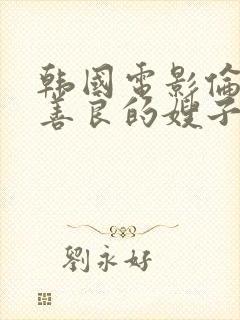 韩國電影倫
善良的嫂子
劉永好